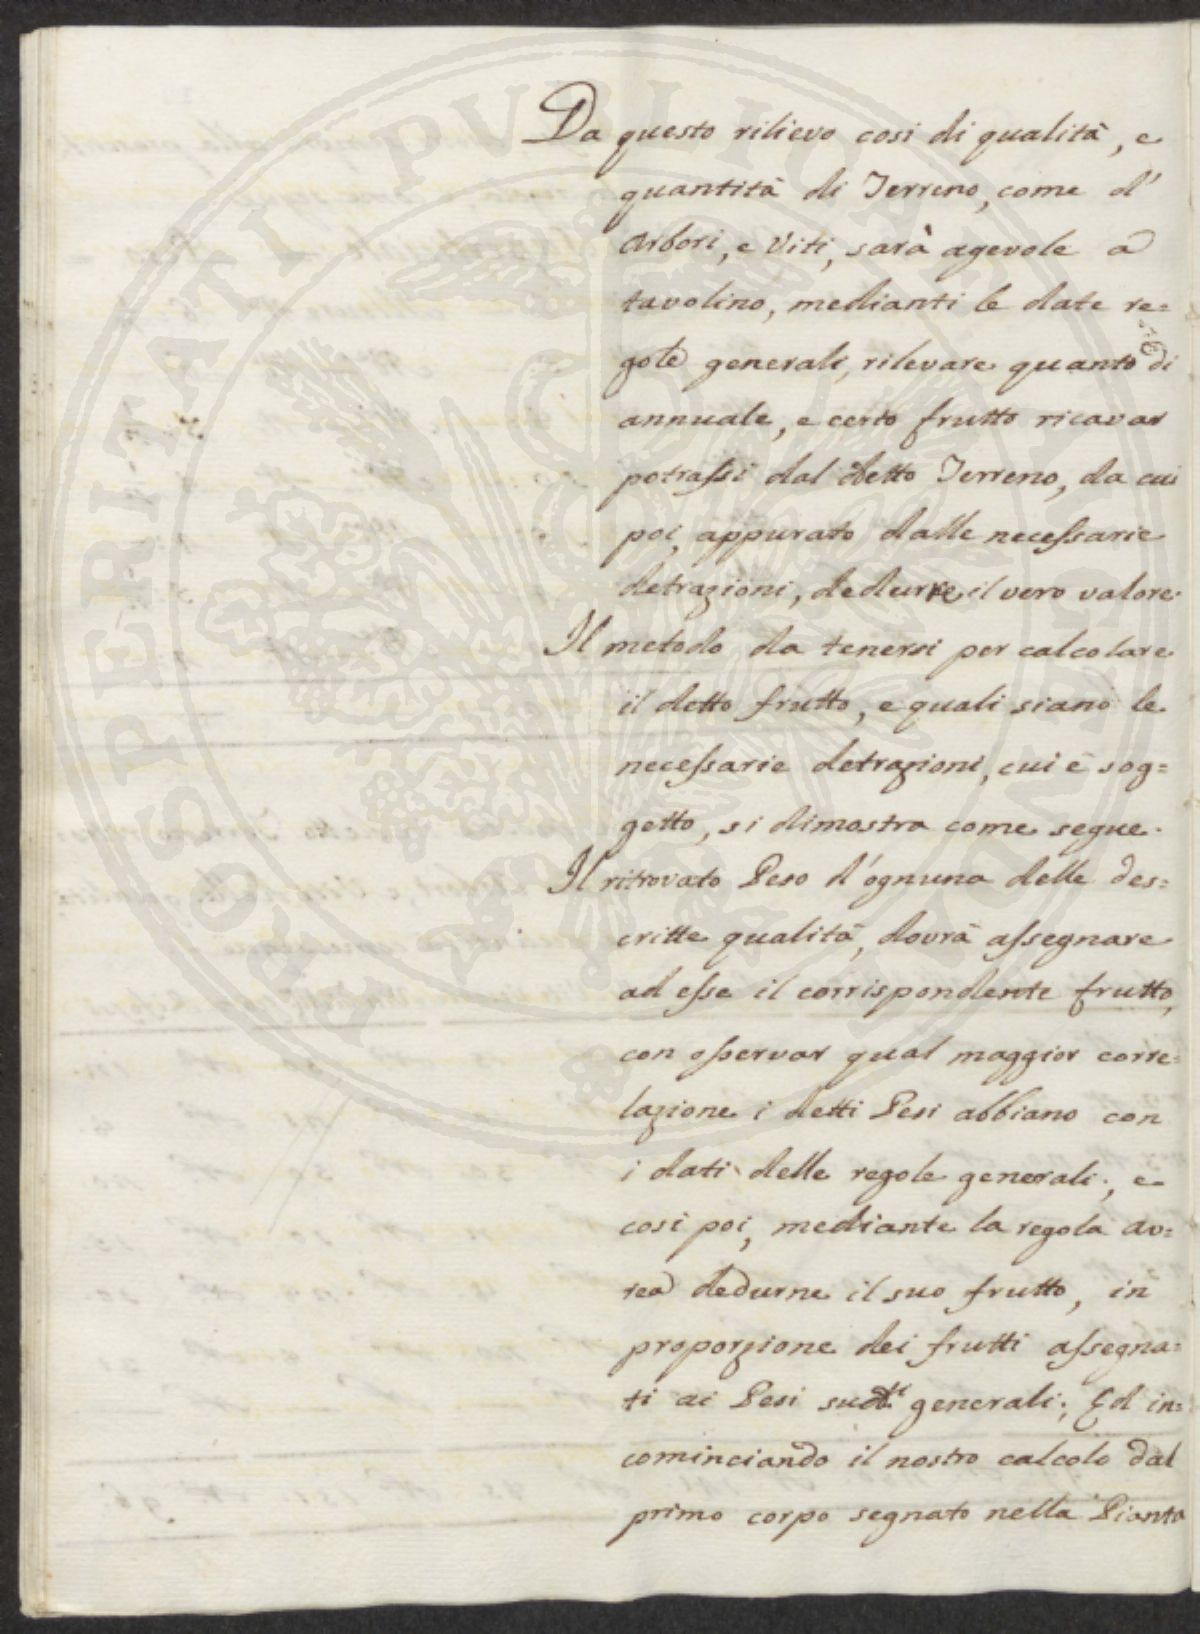 Da questo rilievo cosi di qualità, e
quantità di Terreno, come d'
Arbori, e Viti, sarà agevole a
tavolino, medianti le date re=
gole generali, rilevare quanto di
annuale, e certo frutto ricavar
potrassi dal detto Terreno, da cui
poi, appurato dalle necessarie
detrazioni, dedurre il vero valore
Il metodo da tenersi per calcolare
il detto frutto, e quali siano le
necessarie detrazioni, cui è sog=
getto, si dimostra come segue.
Il ritrovato Peso d'ognuna delle des=
critte qualità, dovrà assegnare
ad esse il corrispondente frutto,
con osservar qual maggior corre=
lazione i detti Pesi abbiano con
i dati delle regole generali; e
cosi poi, mediante la regola au=
rea dedurne il suo frutto, in
proporzione dei frutti assegna=
ti ai Pesi sudti generali; Ed in=
cominciando il nostro calcolo dal
primo corpo segnato nella Pianta
PROSPERITATI PUBLICAE AUGENDAE